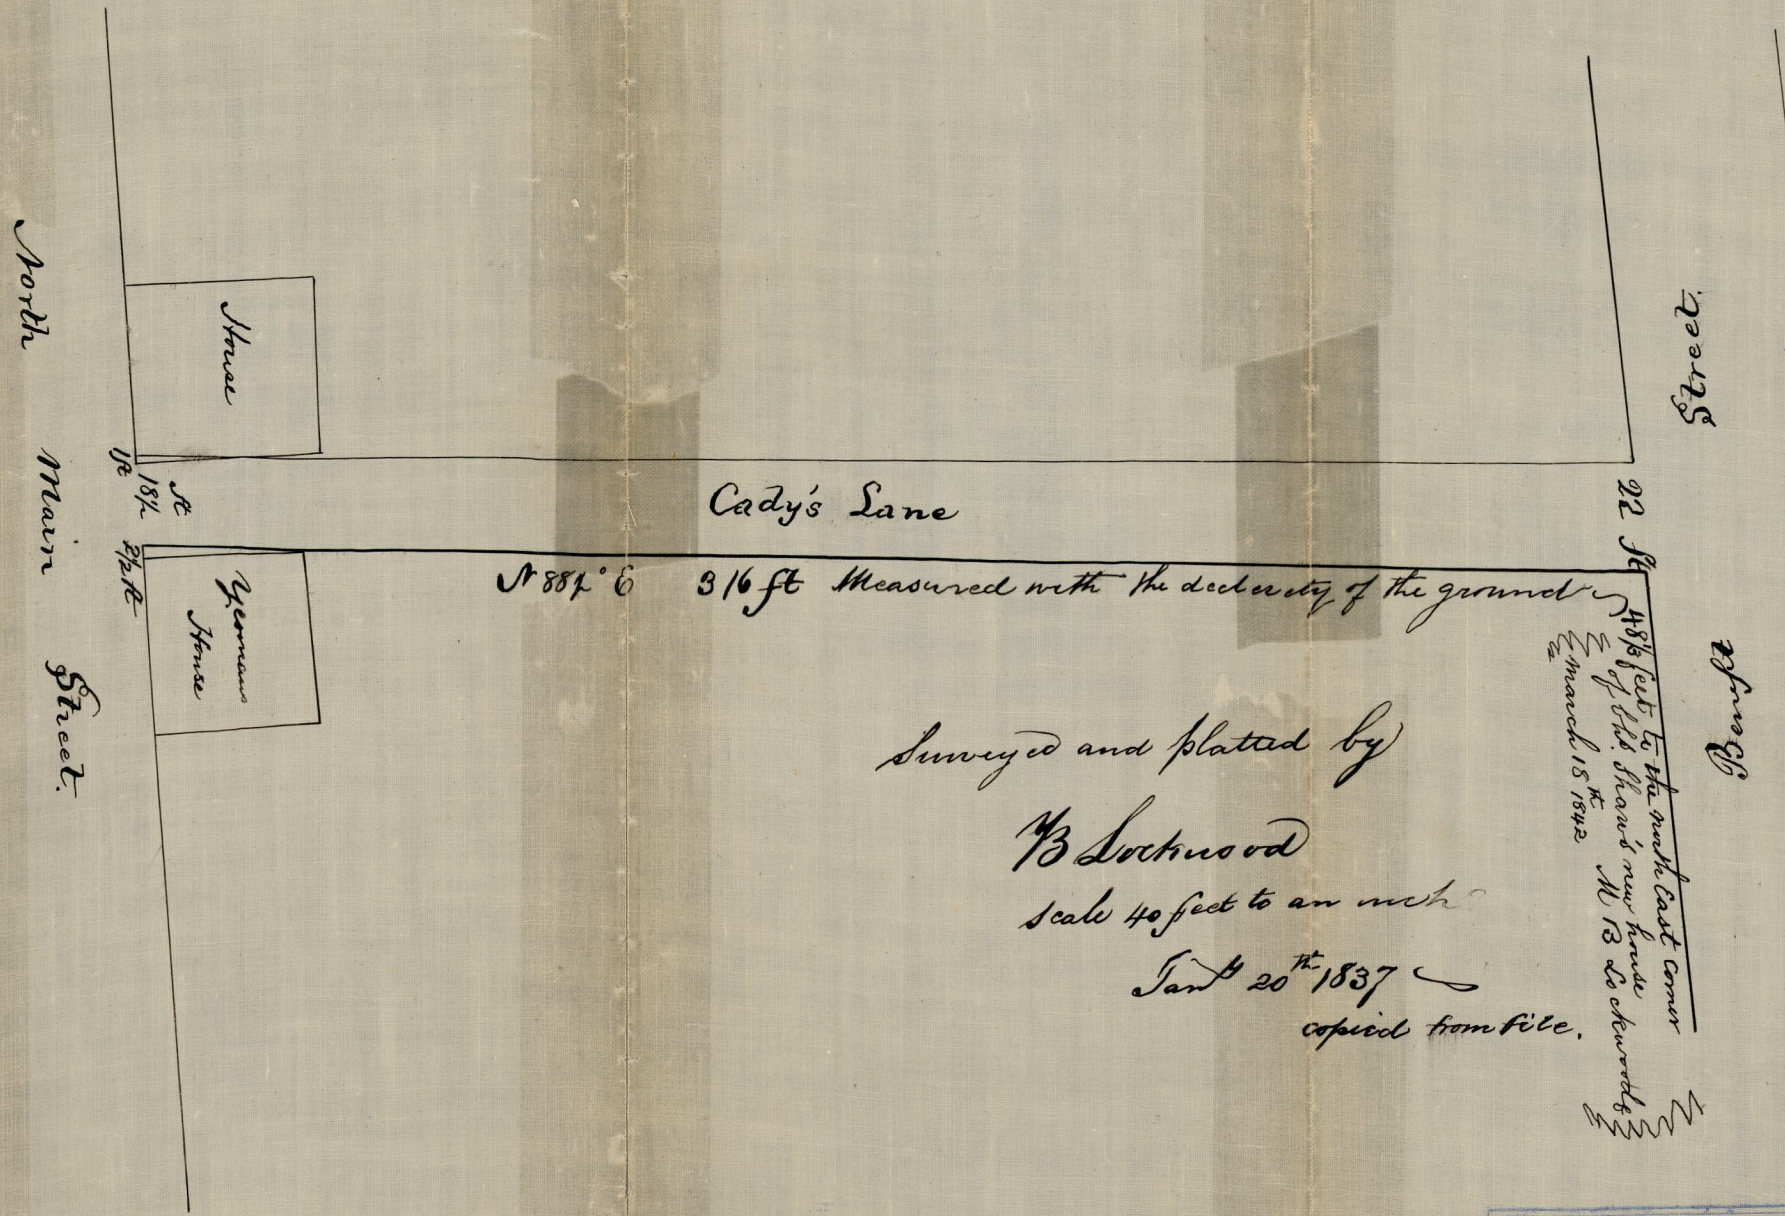 North Main Street.
House
1ft
18½ ft
2½ ft
Yeomans
House
Cady's Lane
N 88½° E 316 ft Measured with the declevity of the ground
22 ft
Benefit Street.
48½ feet to the north East corner
of bhs. Shaw's new house
march 18th 1842 M B Lockwood
Surveyed and platted by
B Lockwood
scale 40 feet to an inch
Jany 20th 1837
copied from file.